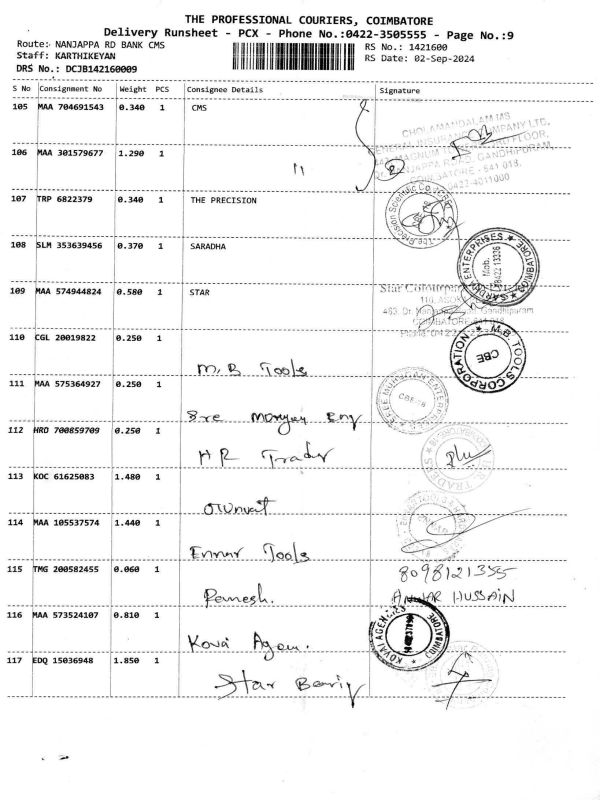 THE PROFESSIONAL COURIERS, COIMBATORE
Delivery Runsheet - PCX - Phone No.:0422-3505555 - Page No.:9
Route: NANJAPPA RD BANK CMS
RS No.: 1421600
Staff: KARTHIKEYAN
RS Date: 02-Sep-2024
DRS No.: DCJB142160009
S No Consignment No Weight PCS Consignee Details Signature
105 MAA 704691543 0.340 1 CMS
CHOLAMANDALAM MS
GENERAL INSURANCE COMPANY LTD.
106 MAA 301579677 1.290 1 "
107 TRP 6822379 0.340 1 THE PRECISION
The Precision Scientific Co
108 SLM 353639456 0.370 1 SARADHA
ENTERPRISES
COIMBATORE
Mob.
109 MAA 574944824 0.580 1 STAR
Star Colour
110 CGL 20019822 0.250 1
M.B Tools
M.B. TOOLS CORPORATION
CBE
111 MAA 575364927 0.250 1
Sre Morugan Eng
SREE MURUGAN ENTERPRISES
112 HRD 700859709 0.250 1
HR Trader
TRADERS
113 KOC 61625083 1.480 1
114 MAA 105537574 1.440 1
Ennar Tools
115 TMG 200582455 0.060 1 8098121355
Ramesh. ANWAR HUSSAIN
116 MAA 573524107 0.810 1
Kovai Agen.
KOVAI AGENCIES
COIMBATORE
117 EDQ 15036948 1.850 1
Star Bearig